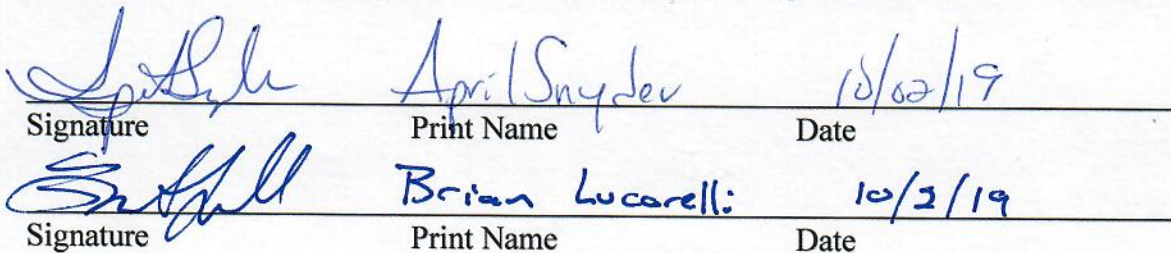 April Snyder 10/02/19
Signature Print Name Date
Brian Lucarelli 10/2/19
Signature Print Name Date